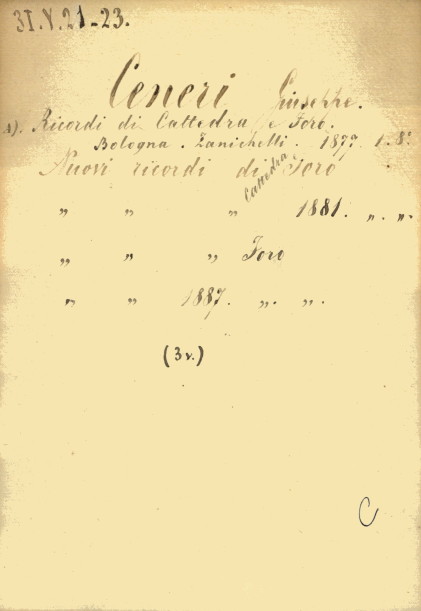 31.V.21-23.
Ceneri Giuseppe.
1). Ricordi di Cattedra e Foro.
Bologna. Zanichelli. 1877. 1. 8°.
Nuovi ricordi di Cattedra Foro
„ „ „ 1881. „. „.
„ „ „ Foro
„ „ 1887. „. „.
(3 v.)
C